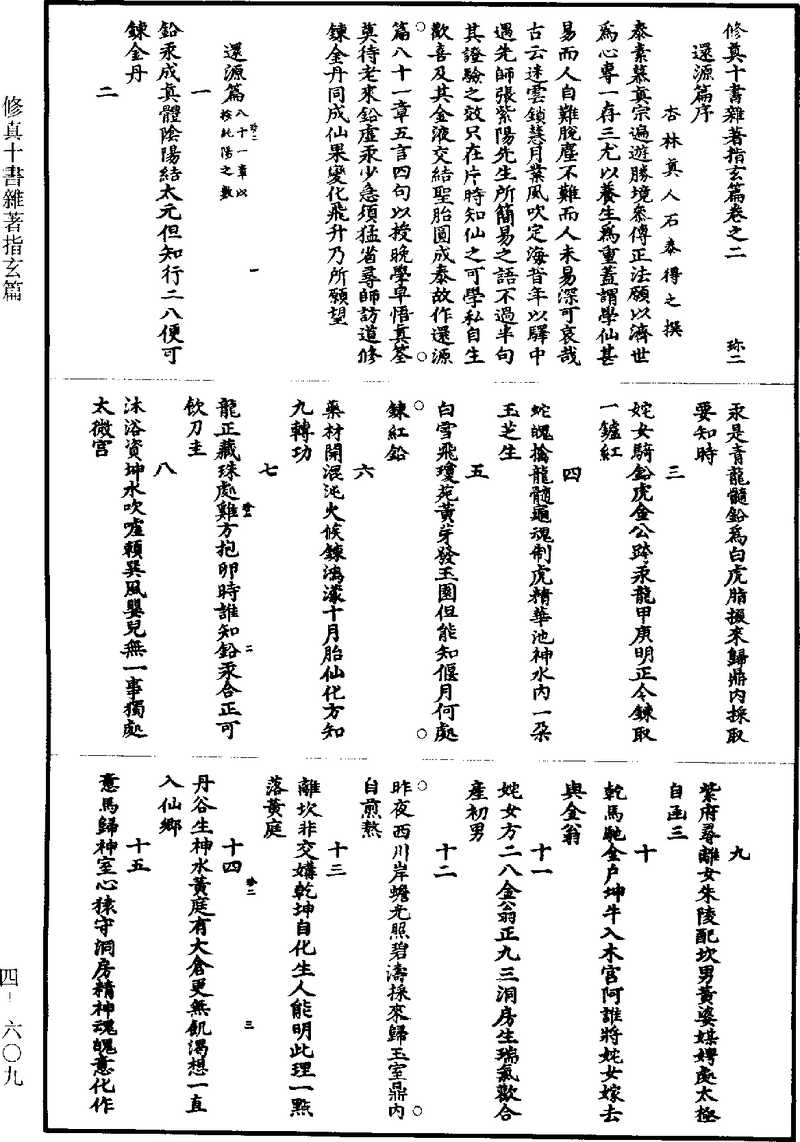 修真十書雜著指玄篇
四-六〇九
修真十書雜著指玄篇卷之二 珎二
還源篇序
杏林真人石泰得之撰
泰素慕真宗遍遊勝境參傳正法願以濟世
為心專一存三尤以養生為重蓋謂學仙甚
易而人自難脫塵不難而人未易深可哀哉
古云迷雲鎖慧月業風吹定海昔年以驛中
遇先師張紫陽先生所簡易之語不過半句
其證驗之效只在片時知仙之可學私自生
歡喜及其金液交結聖胎圓成泰故作還源
篇八十一章五言四句以授晚學早悟真筌
莫待老來鉛虛汞少急須猛省尋師訪道修
鍊金丹同成仙果變化飛升乃所願望
還源篇 八十一章以按純陽之數
一
鉛汞成真體陰陽結太元但知行二八便可
鍊金丹
二
汞是青龍髓鉛為白虎脂掇來歸鼎內採取
要知時
三
姹女騎鉛虎金公跨汞龍甲庚明正令鍊取
一鑪紅
四
蛇魄擒龍髓龜魂制虎精華池神水內一朶
玉芝生
五
白雪飛瓊苑黃芽發玉園但能知偃月何處
鍊紅鉛
六
藥材開混沌火候鍊鴻濛十月胎仙化方知
九轉功
七
龍正藏珠處雞方抱卵時誰知鉛汞合正可
飲刀圭
八
沐浴資坤水吹噓賴巽風嬰兒無一事獨處
太微宮
九
紫府尋離女朱陵配坎男黃婆媒娉處太極
自函三
十
乾馬馳金戶坤牛入木宮阿誰將姹女嫁去
與金翁
十一
姹女方二八金翁正九三洞房生瑞氣歡合
產初男
十二
昨夜西川岸蟾光照碧濤採來歸玉室鼎內
自煎熬
十三
離坎非交媾乾坤自化生人能明此理一點
落黃庭
十四
丹谷生神水黃庭有大倉更無飢渴想一直
入仙鄉
十五
意馬歸神室心猿守洞房精神魂魄意化作